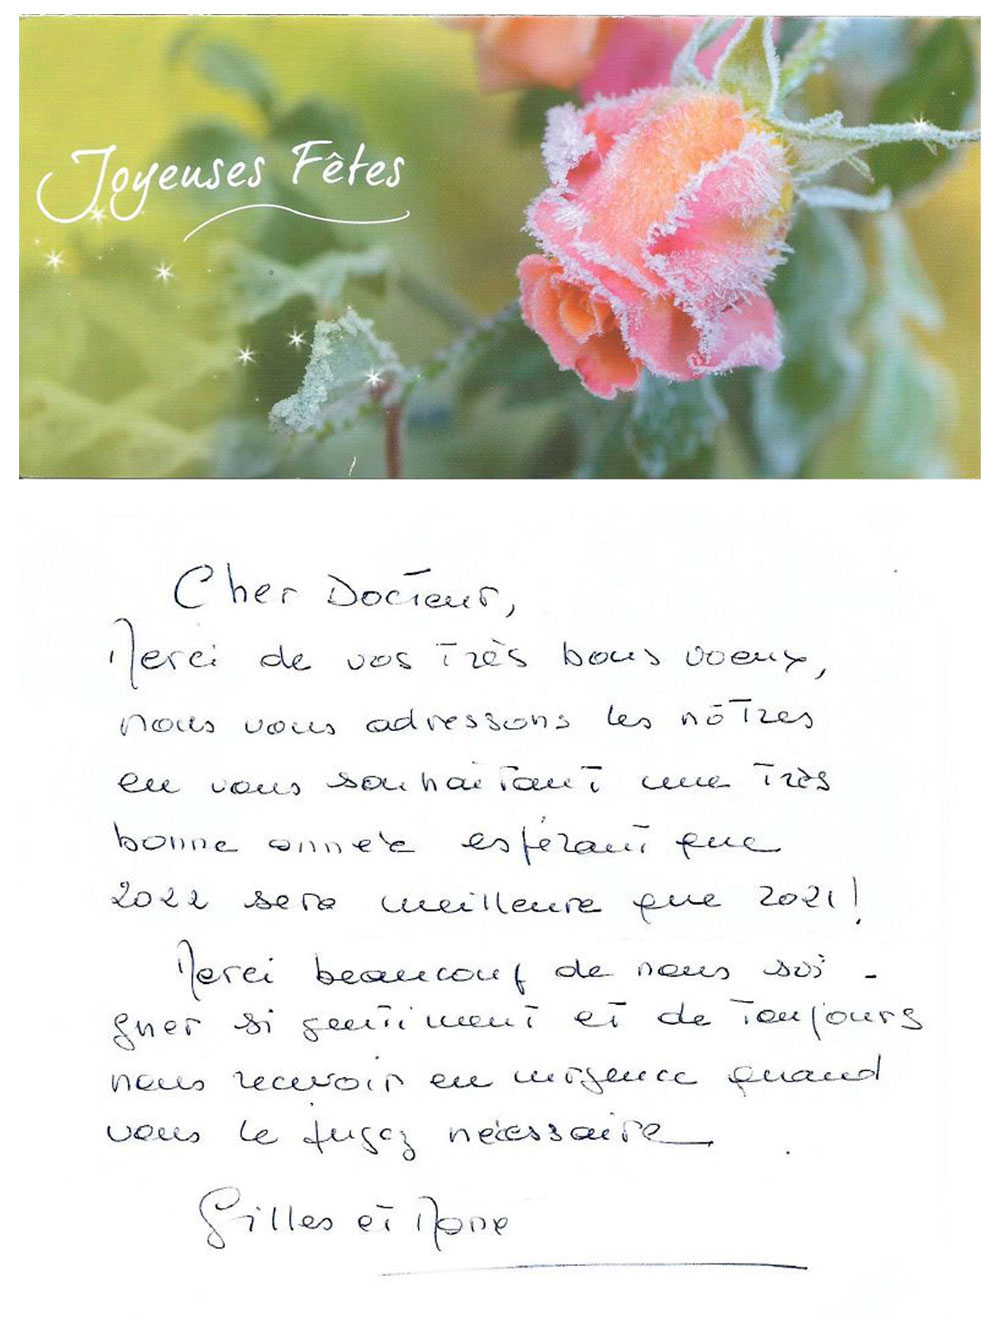 Joyeuses Fêtes
Cher Docteur,
Merci de vos très bons voeux,
nous vous adressons les nôtres
en vous souhaitant une très
bonne année espérant que
2022 sera meilleure que 2021!
Merci beaucoup de nous soi-
gner si gentiment et de toujours
nous recevoir en urgence quand
vous le jugez nécessaire.
Gilles et